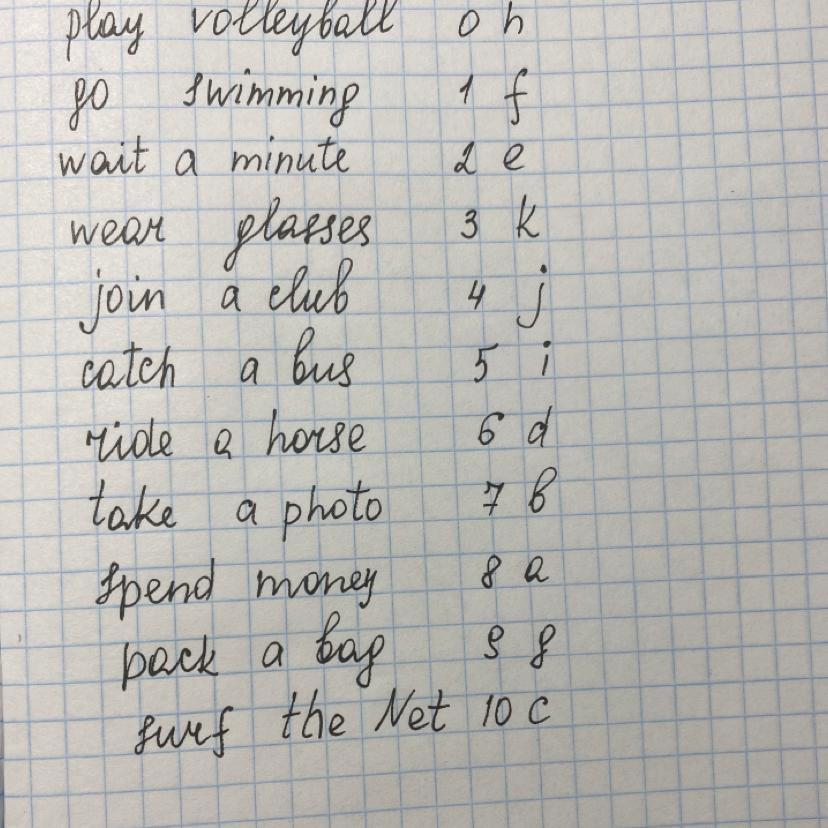 play volleyball 0 h
go swimming 1 f
wait a minute 2 e
wear glasses 3 k
join a club 4 j
catch a bus 5 i
ride a horse 6 d
take a photo 7 b
spend money 8 a
pack a bag 9 g
surf the Net 10 c